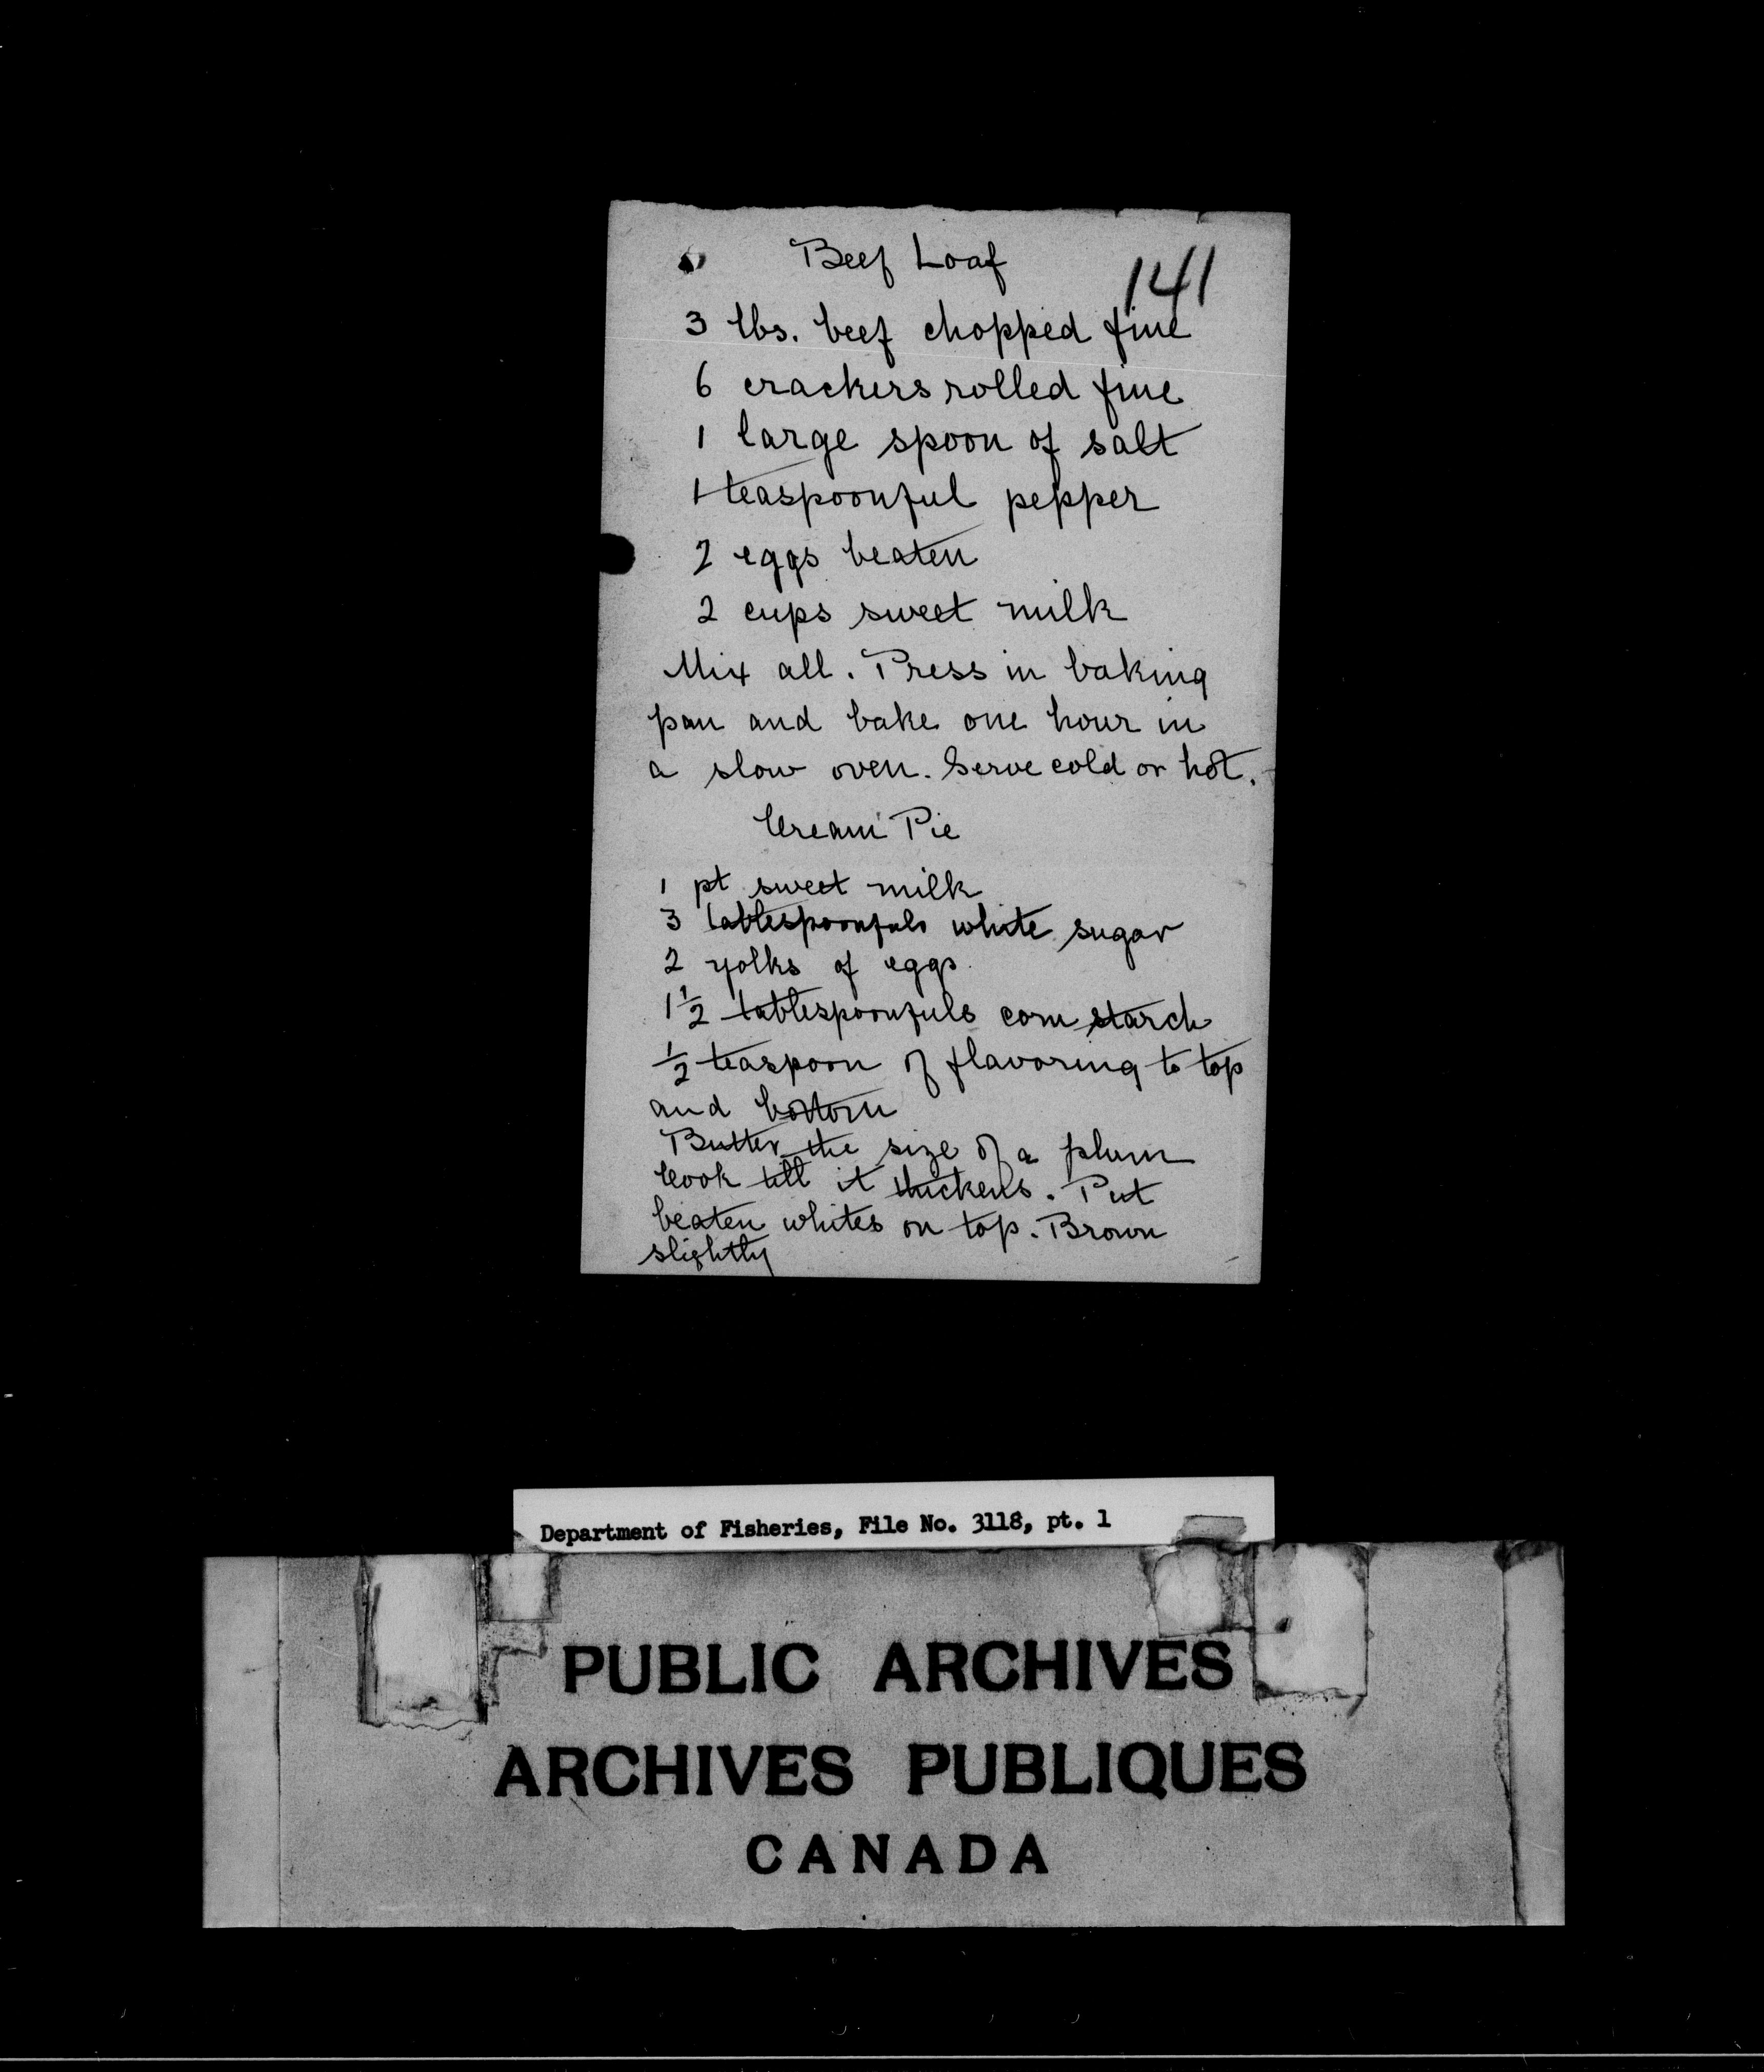 Beef Loaf
141
3 lbs. beef chopped fine
6 crackers rolled fine
1 large spoon of salt
1 teaspoonful pepper
2 eggs beaten
2 cups sweet milk
Mix all. Press in baking
pan and bake one hour in
a slow oven. Serve cold or hot.
Cream Pie
1 pt sweet milk
3 tablespoonfuls white sugar
2 yolks of eggs
1½ tablespoonfuls corn starch
½ teaspoon of flavoring to top
and bottom
Butter the size of a plum
Cook till it thickens. Put
beaten whites on top. Brown
slightly
Department of Fisheries, File No. 3118, pt. 1
PUBLIC ARCHIVES
ARCHIVES PUBLIQUES
CANADA